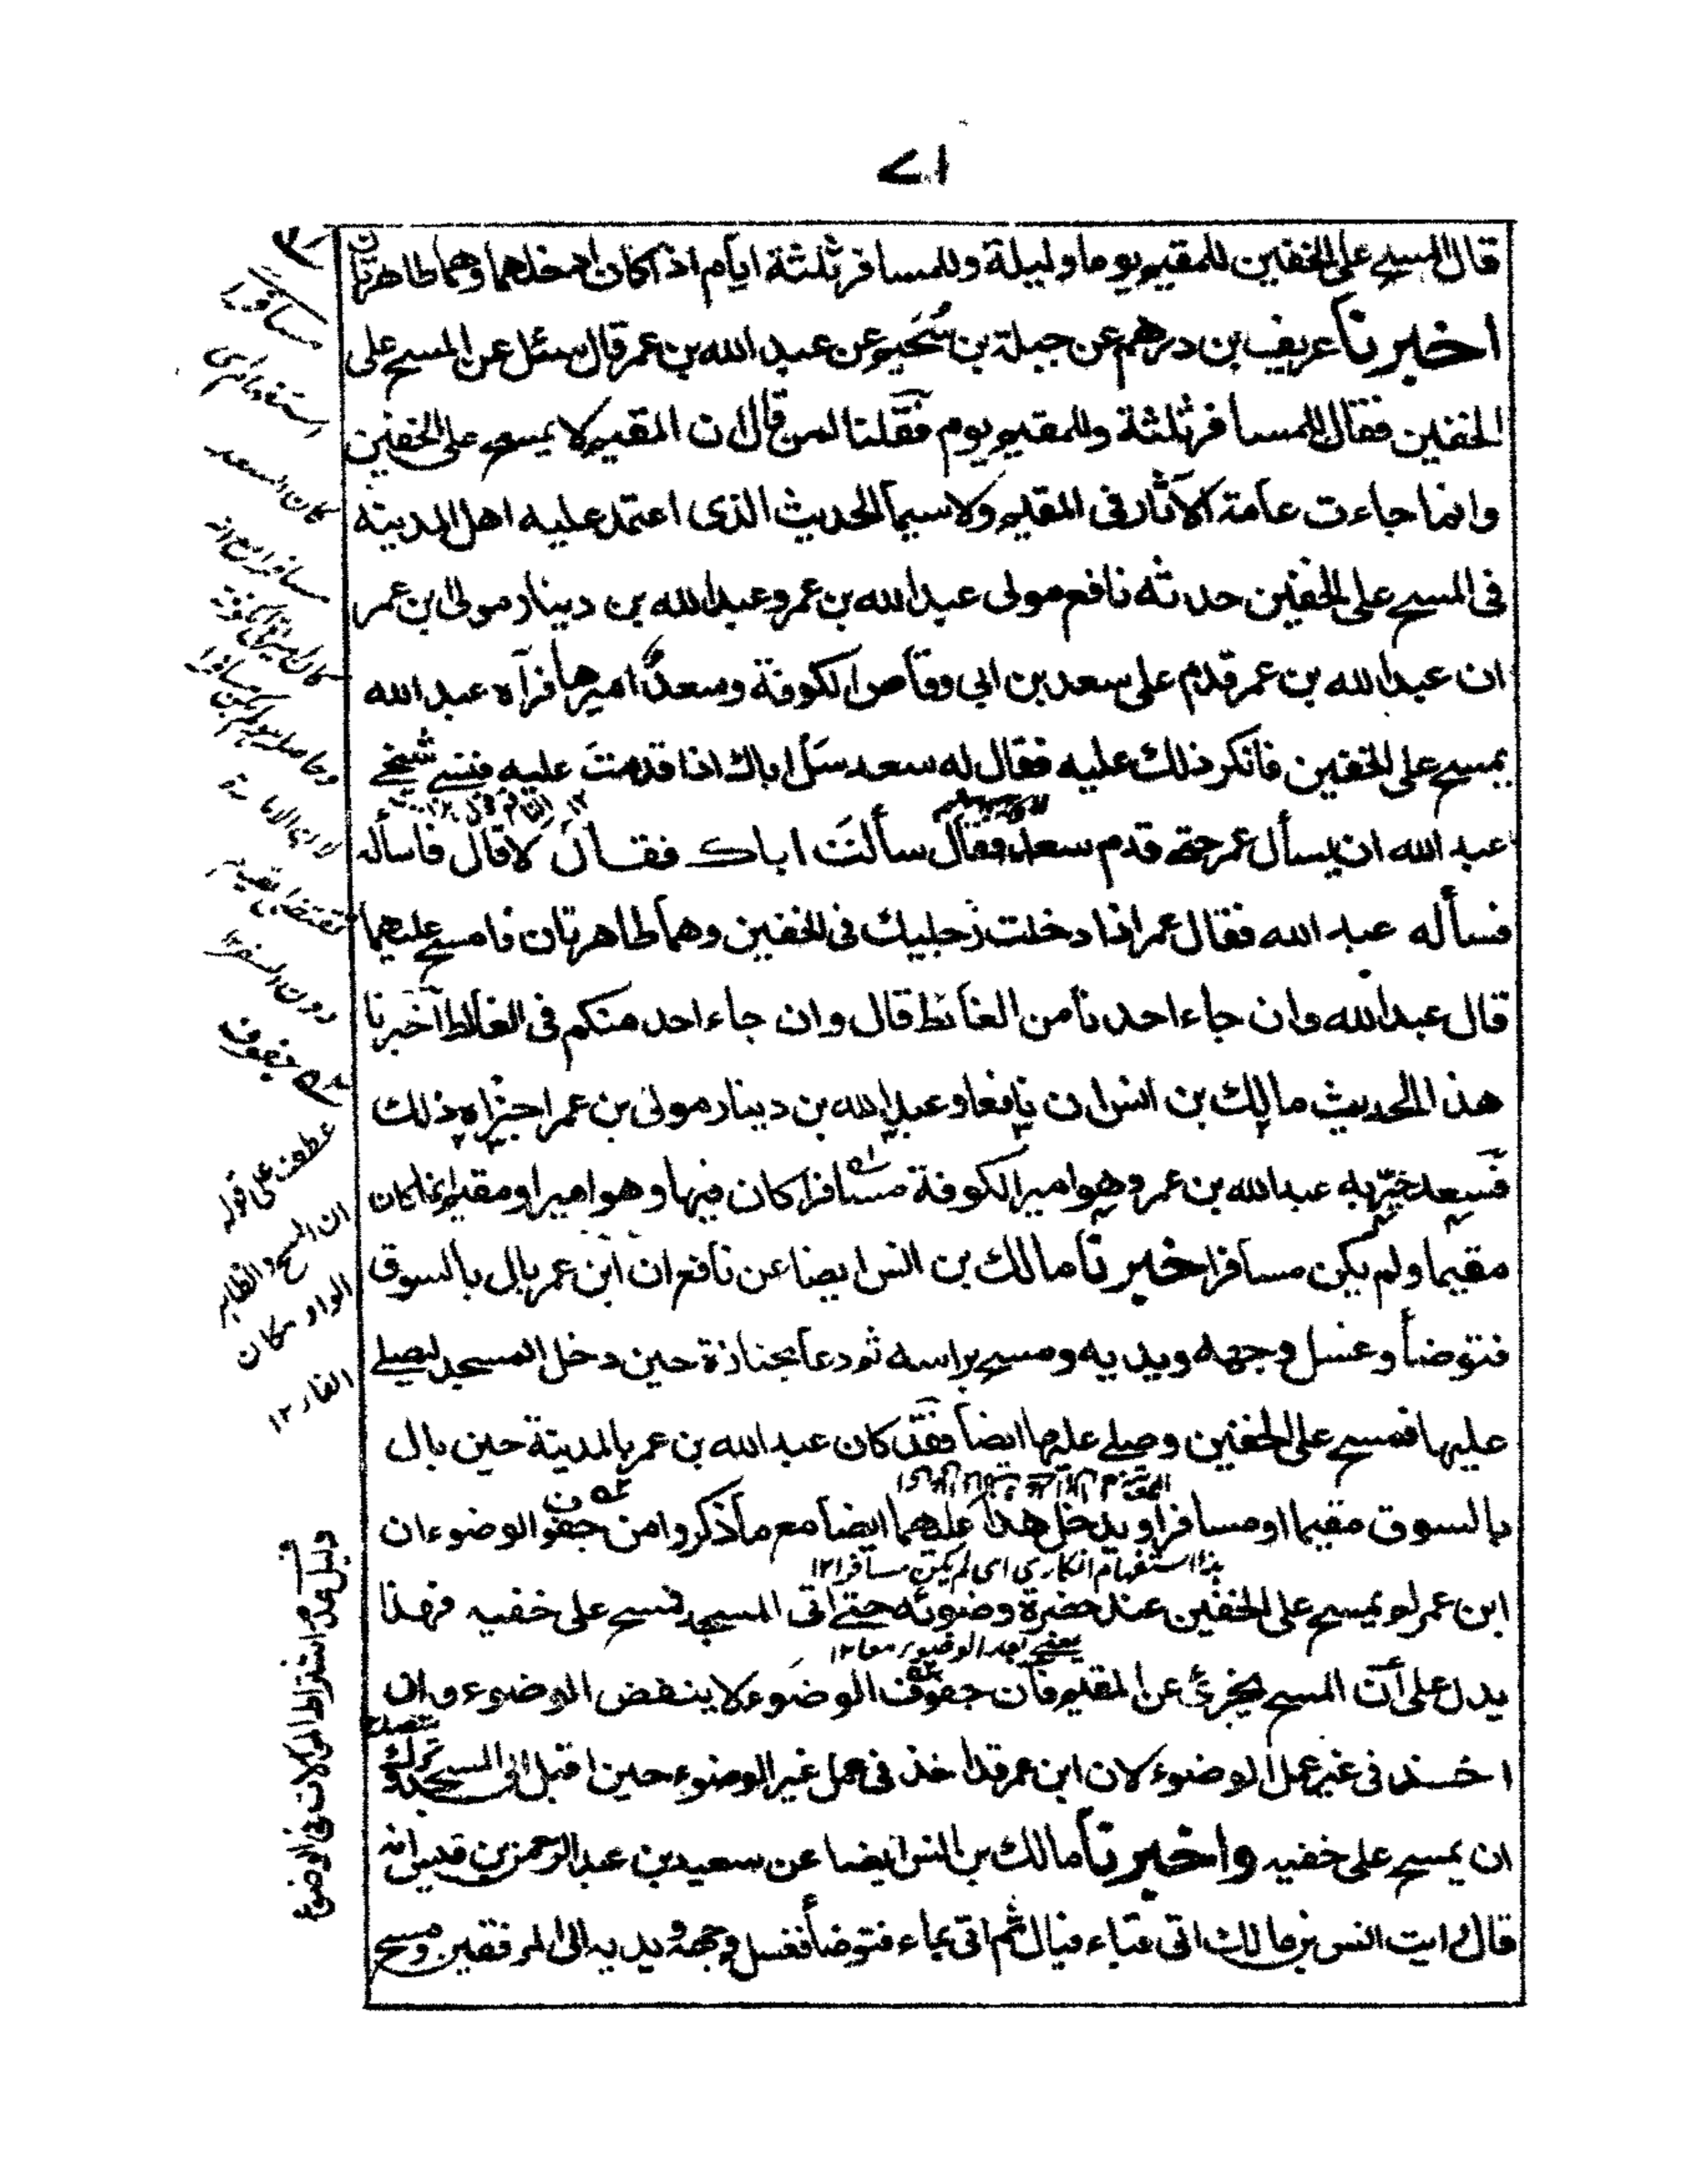 ۷۱
قال المسح على الخفين للمقيم يوما وليلة وللمسافر ثلثة ايام اذا كان ادخلهما وهما طاهرتان
اخبرنا عريف بن درهم عن جبلة بن سحيم عن عبد الله بن عمر قال سئل عن المسح على
الخفين فقال للمسافر ثلثة وللمقيم يوم فقلنا لمن قال ان المقيم لا يمسح على الخفين
وانما جاءت عامة الآثار في المقيم ولا سيما الحديث الذى اعتمد عليه اهل المدينة
فى المسح على الخفين حدثه نافع مولى عبد الله بن عمر وعبد الله بن دينار مولى ابن عمر
ان عبد الله بن عمر قدم على سعد بن ابي وقاص الكوفة وسعد اميرها فرآه عبد الله
يمسح على الخفين فانكر ذلك عليه فقال له سعد سل اباك اذا قدمت عليه فنسي
عبد الله ان يسأل عمر حتى قدم سعد فقال سألت اباك فقال لا قال فاسأله
فسأله عبد الله فقال عمر اذا ادخلت رجليك في الخفين وهما طاهرتان فامسح عليهما
قال عبد الله وان جاء احدنا من الغائط قال وان جاء احد منكم في الغائط اخبرنا
هذا الحديث مالك بن انس ان نافعا وعبد الله بن دينار مولى بن عمر اخبراه ذلك
فسعد خبر به عبد الله بن عمر وهو امير الكوفة مسافرا كان فيها وهو امير او مقيم انما كان
مقيما ولم يكن مسافرا اخبرنا مالك بن انس ايضا عن نافع ان ابن عمر بال بالسوق
فتوضأ وغسل وجهه ويديه ومسح براسه ثم دعا بجنازة حين دخل المسجد ليصلي
عليها فمسح على الخفين وصلى عليها ايضا فقد كان عبد الله بن عمر بالمدينة حين بال
بالسوق مقيما او مسافرا ويدخل هذا عليهما ايضا مع ما ذكروا من جفوف الوضوء ان
هذا استفهام انكارى اى لم يكن مسافرا ١٢
ابن عمر لم يمسح على الخفين عند حضرة وضوئه حتى اتى المسجد فمسح على خفيه فهذا
يدل على أن المسح يجزئ عن المقيم فان جفوف الوضوء لا ينقض الوضوء وان
اخذ في غير عمل الوضوء لان ابن عمر قد اخذ في عمل غير الوضوء حين اقبل الى المسجد وترك
ان يمسح على خفيه واخبرنا مالك بن انس ايضا عن سعيد بن عبد الرحمن بن قيس انه
قال رايت انس بن مالك اتى قباء فبال ثم اتى بماء فتوضأ فغسل وجهه ويديه الى المرفقين ومسح
مسافرا
لان الامارة
دون السفر ١٢
جفوف
عطف على قوله
ان المسح والظاهر
الواو مكان
الفاء ١٢
دليل عدم اشتراط الموالات في الوضوء